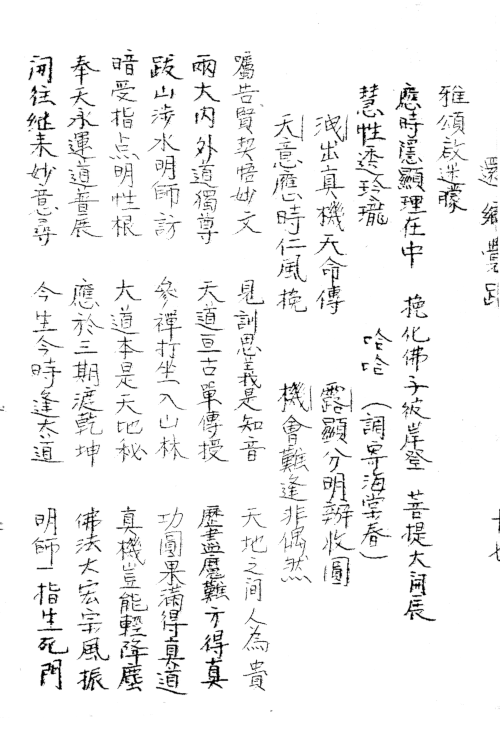 還鄉覺路
雅頌啟迷矇
應時隱顯理在中　挽化佛子彼岸登　菩提大開展
慧性透玲瓏　哈哈　（調寄海棠春）
洩出真機天命傳　露顯分明辦收圓
天意應時仁風挽　機會難逢非偶然
囑告賢契悟妙文　見訓思義是知音　天地之間人為貴
兩大內外道獨尊　天道亘古單傳授　歷盡魔難方得真
跋山涉水明師訪　參禪打坐入山林　功圓果滿得真道
暗受指点明性根　大道本是天地秘　真機豈能輕降塵
奉天永運道普展　應於三期渡乾坤　佛法大宏宗風振
開往継耒妙意尋　今生今時逢大道　明師一指生死門